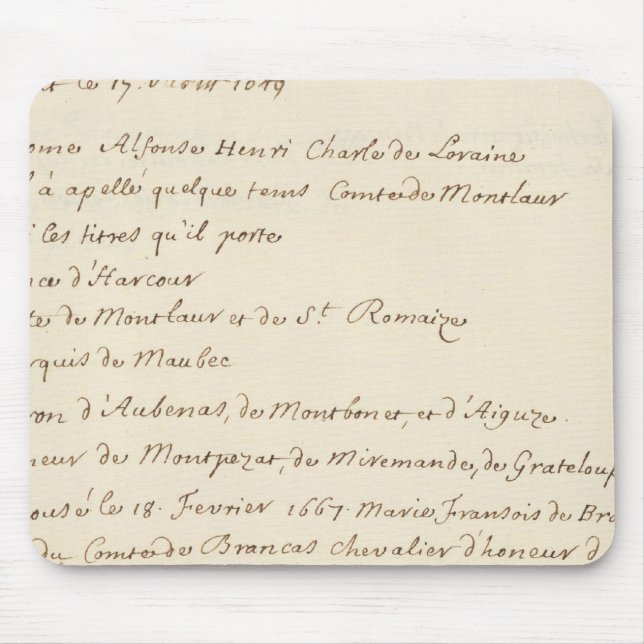 le 17. 1649
ome Alfonse Henri Charle de Loraine
l'à apellé quelque tems Comte de Montlaur
i les titres qu'il porte
nce d'Harcour
te de Montlaur et de St. Romaize
rquis de Maubec
ron d'Aubenas, de Montbonet, et d'Aiguze.
neur de Montpezat, de Miremande, de Grateloup
ousé le 18. Fevrier 1667. Marie Fransoise de Bra
du Comte de Brancas chevalier d'honeur d